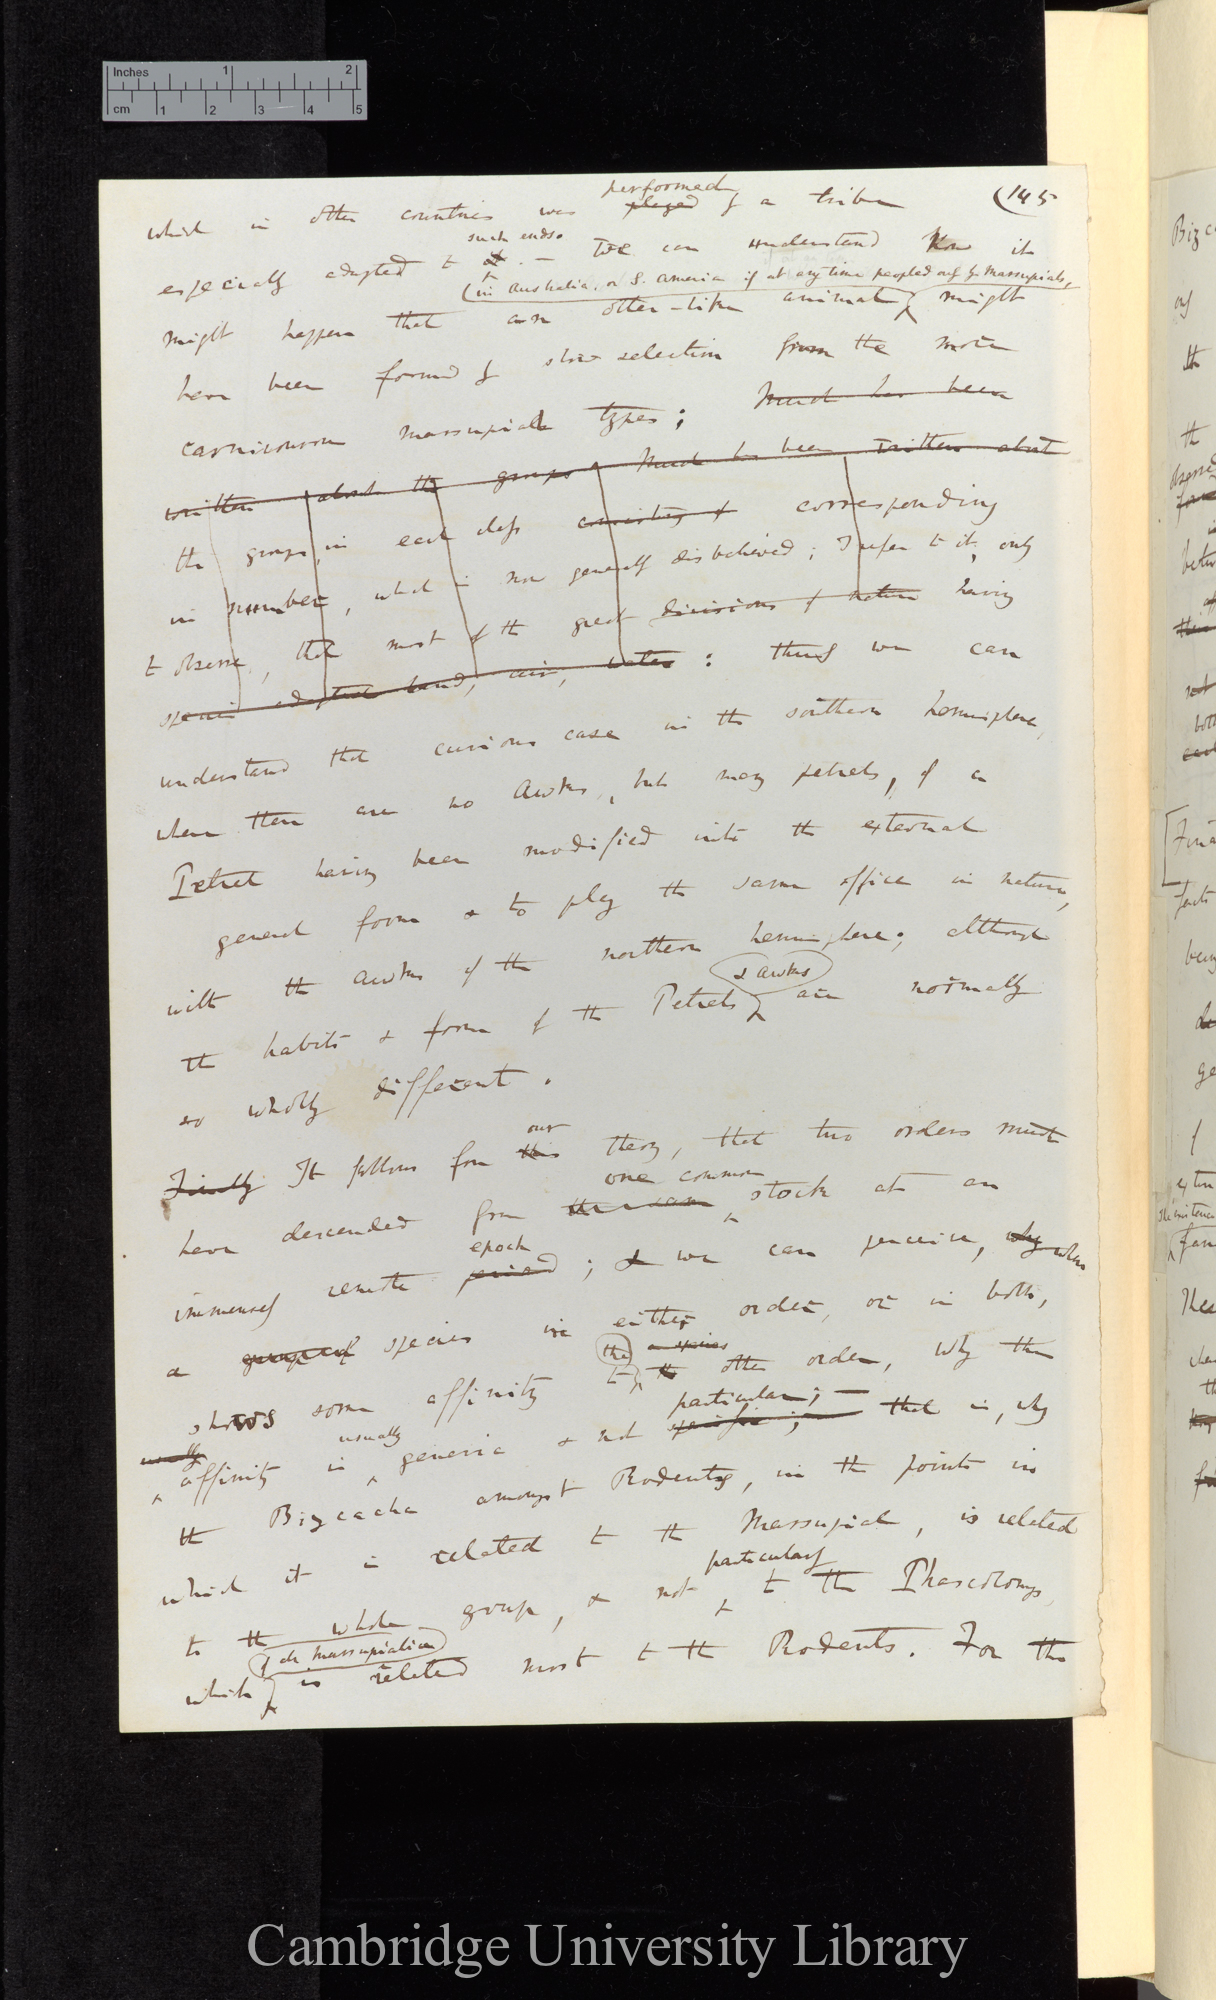 Inches 1 2
cm 1 2 3 4 5
(145
performed
which in other countries was played by a tribe
such ends.
especially adapted to it. — We can understand how it
(in Australia, or S. America if at any time peopled only by Marsupials,
might happen that an otter-like animal might
have been formed by slow selection from the more
carnivorous marsupial types; Much has been
written about the groups Much has been written about
the groups, in each class consisting of corresponding
in number, which is now generally disbelieved; I refer to it, only
to observe, that most of the great divisions of nature having
species adapted land, air, water: thus we can
understand that curious case in the southern hemisphere,
where there are no Awks, but many petrels, of a
Petrel having been modified into the external
general form & to play the same office in nature,
with the awks of the northern hemisphere; although
& awks
the habits & form of the Petrels are normally
so wholly different.
our
Finally It follows from this theory, that two orders must
one common
have descended from the same stock at an
epoch
immensely remote period; & we can perceive, why when
a group of species in either order, or in both,
the a species
shows some affinity to the other order, why the
usually particular; —
usually affinity is generic & not specific; — that is, why
the Bizcacha amongst Rodents, in the points in
which it is related to the Marsupial, is related
particularly
to the whole group, & not to the Phascolomys,
of all Marsupialia
which is related most to the Rodents. For the
Cambridge University Library